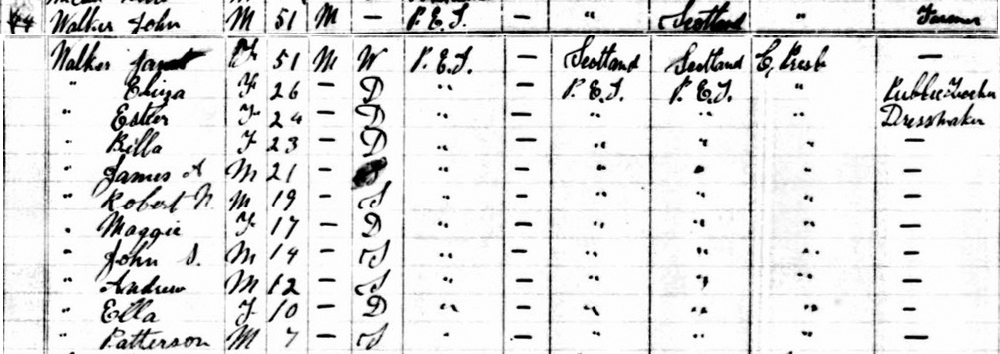 44 Walker John M 51 M — P.E.I. — " Scotland " Farmer
Walker Janet F 51 M W P.E.I. — Scotland Scotland C. Presb —
" Eliza F 26 — D " P.E.I. P.E.I. " Public Teacher
" Ester F 24 — D " — " " " Dressmaker
" Billa F 23 — D " — " " " —
" James A M 21 — S " — " " " —
" Robert N. M 19 — S " — " " " —
" Maggie F 17 — D " — " " " —
" John S. M 14 — S " — " " " —
" Andrew M 12 — S " — " " " —
" Ella F 10 — D " — " " " —
" Patterson M 7 — S " — " " " —